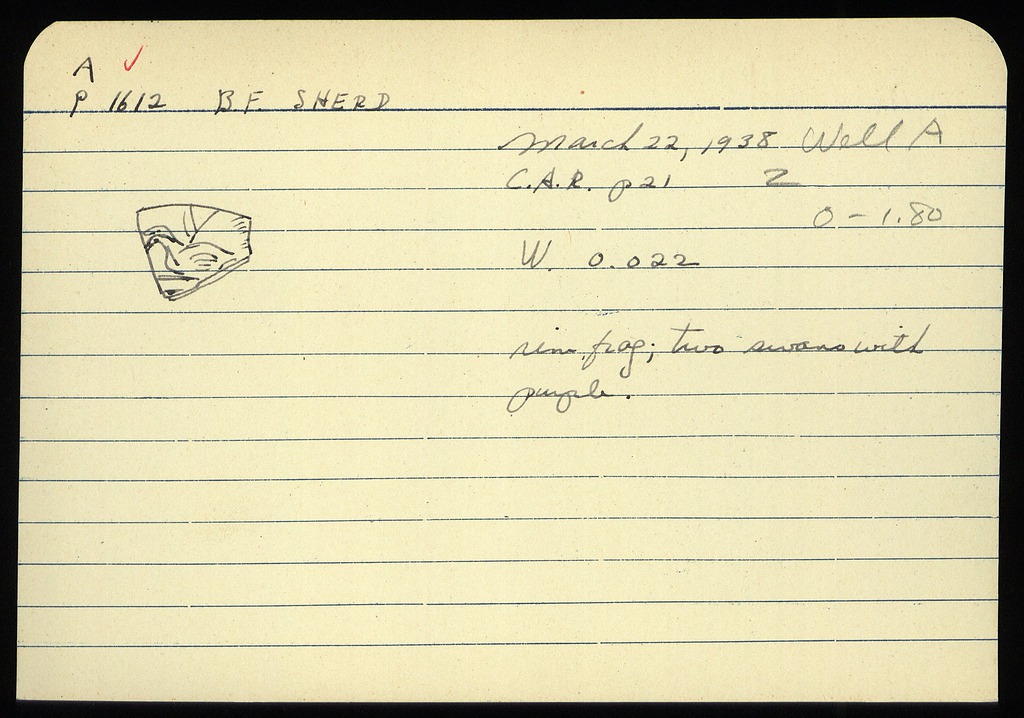 A ✓
P 1612 B.F. SHERD
March 22, 1938 Well A
C.A.R. p 21 Z
0 - 1.80
W. 0.022
rim frag; two swans with
purple.